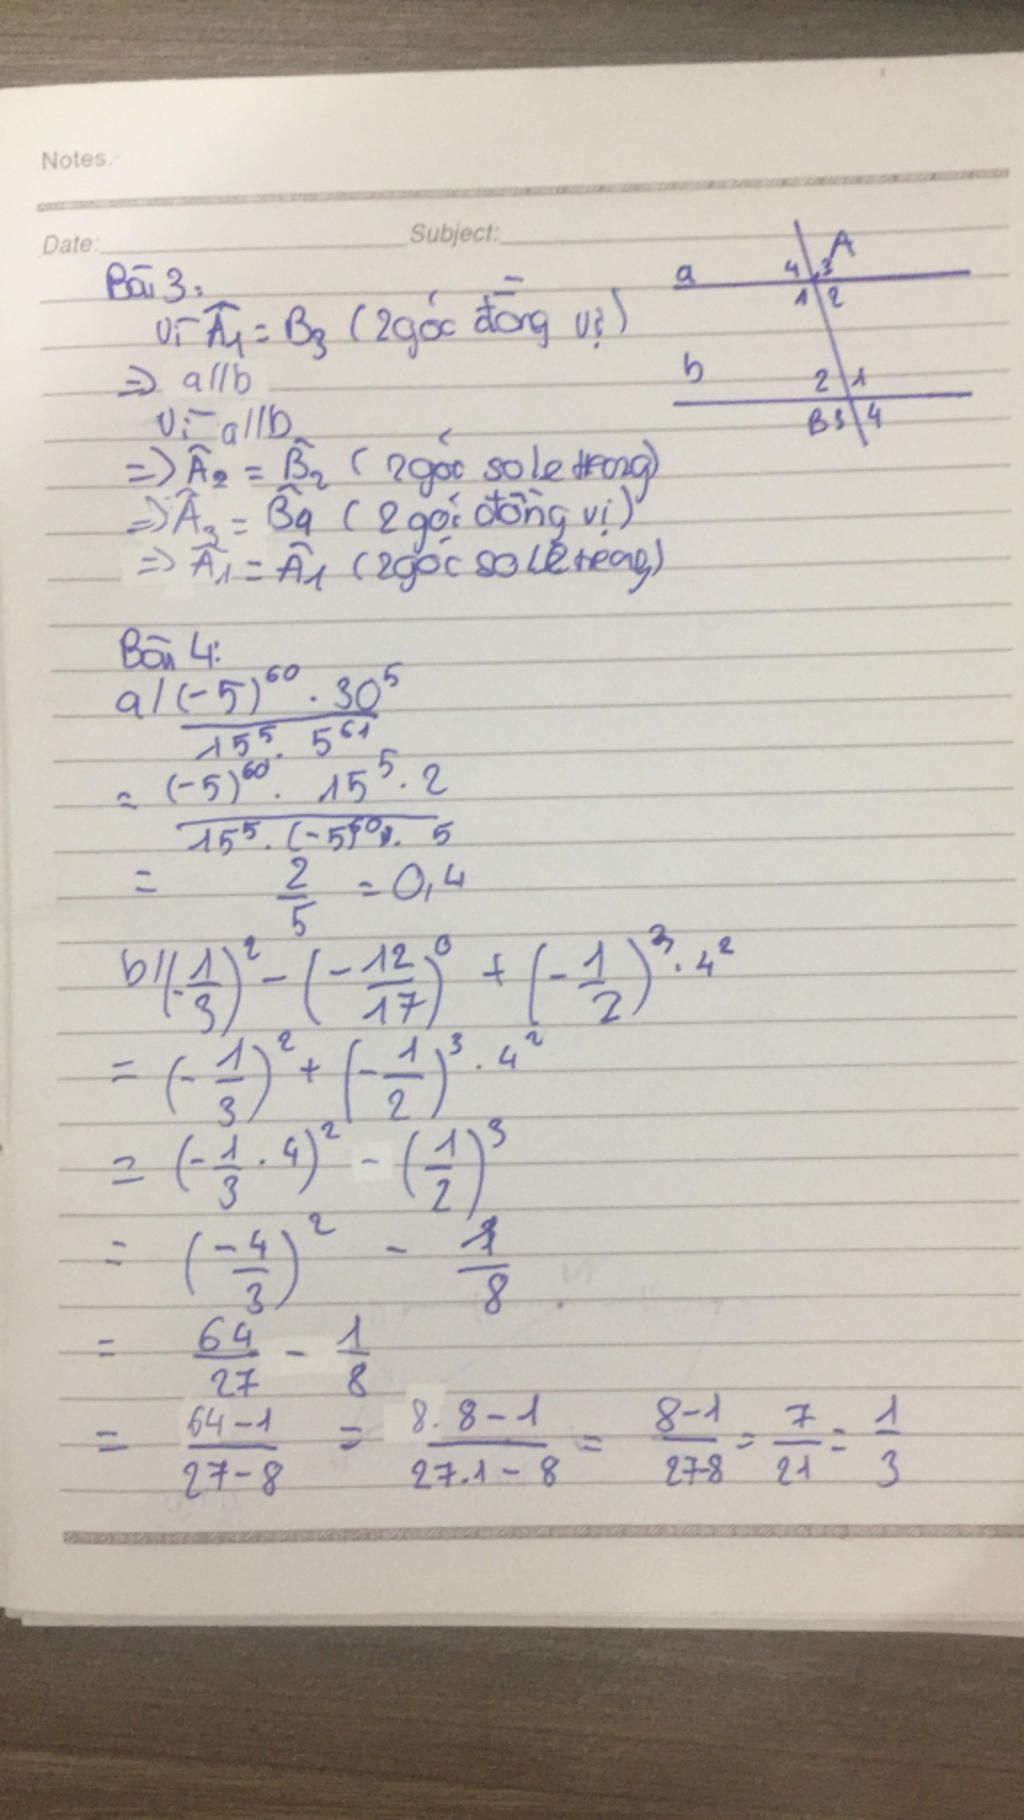 Notes.
Date: Subject:
Bài 3:
Vì Â1 = B3 (2 góc đồng vị)
=> a//b
Vì a//b
=> Â2 = B̂2 (2 góc so le trong)
=> Â3 = B̂a (2 góc đồng vị)
=> Â1 = Â1 (2 góc so le trong)
a 4 3 A
1 2
b 2 1
B3 4
Bài 4:
a/ (-5)^60 . 30^5
15^5 . 5^61
= (-5)^60 . 15^5 . 2
15^5 . (-5)^60 . 5
= 2/5 = 0,4
b/ (-1/3)^2 - (-12/17)^0 + (-1/2)^3 . 4^2
= (-1/3)^2 + (-1/2)^3 . 4^2
= (-1/3 . 4)^2 - (1/2)^3
= (-4/3)^2 - 1/8
= 64/27 - 1/8
= 64-1/27-8 = 8.8-1/27.1-8 = 8-1/27-8 = 7/21 = 1/3